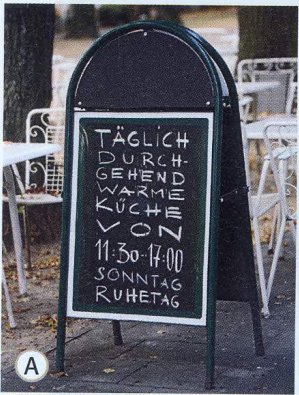 TÄGLICH
DURCH-
GEHEND
WARME
KÜCHE
VON
11:30-17:00
SONNTAG
RUHETAG
A